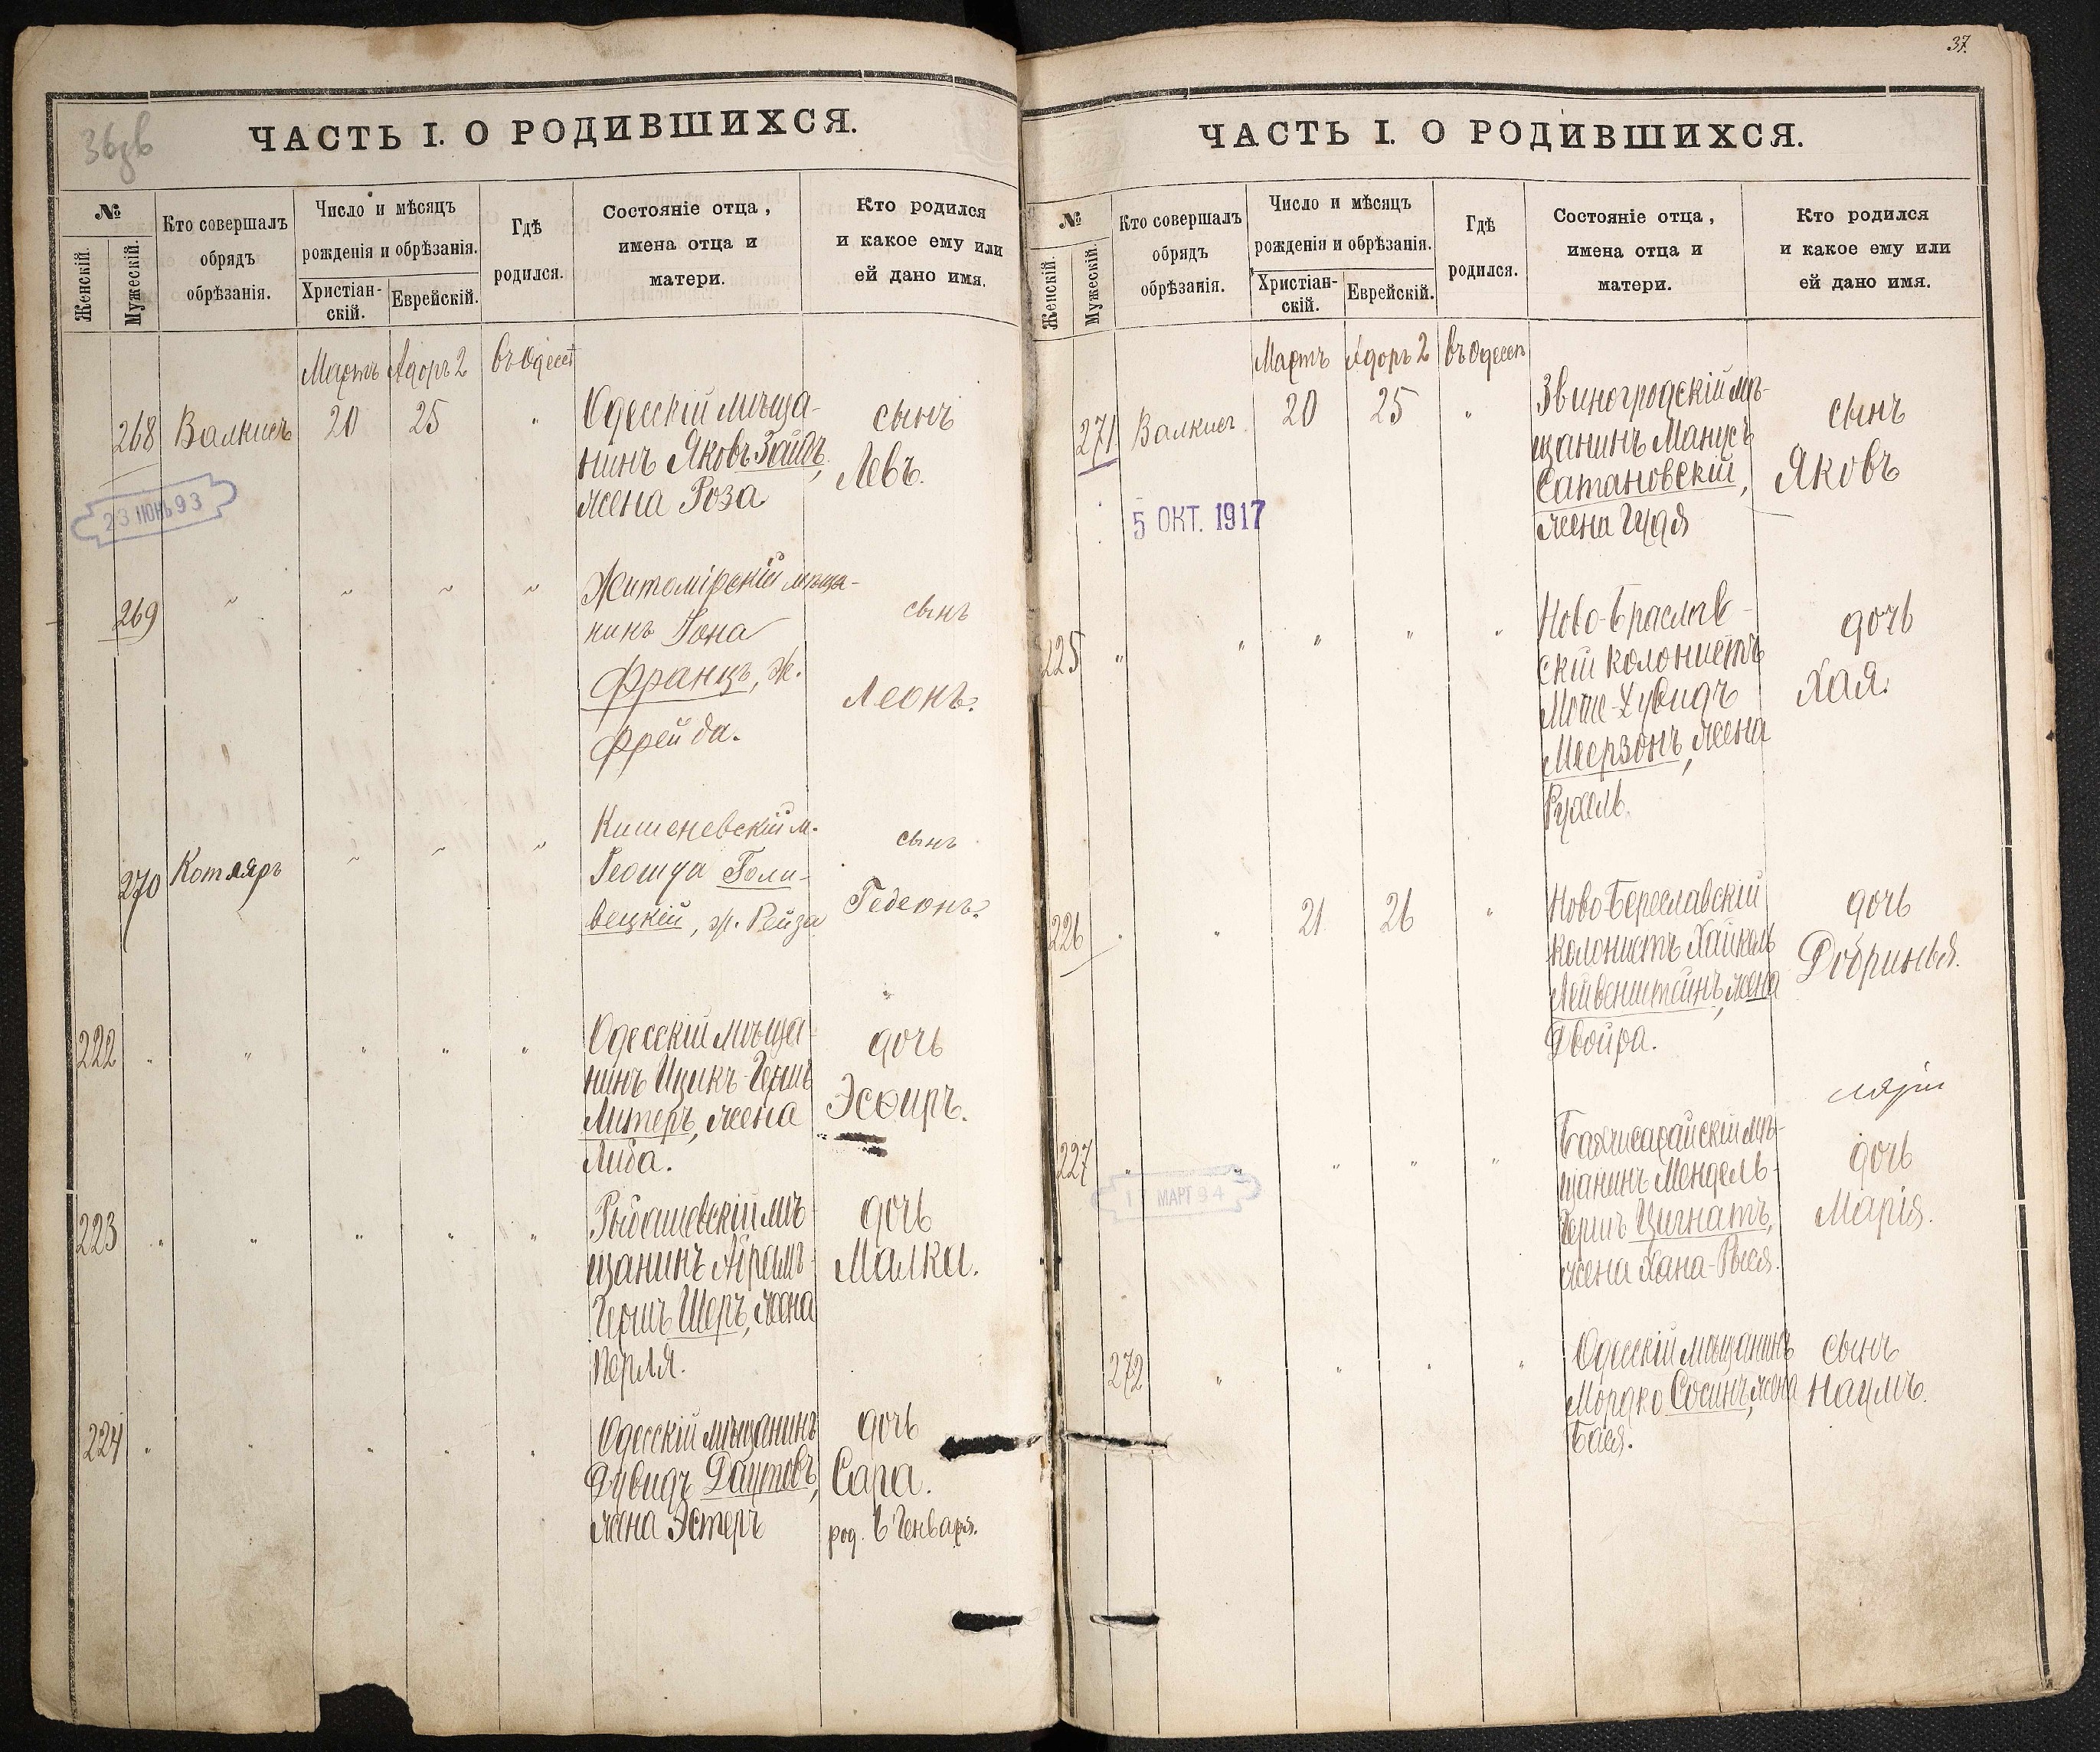 36зв
ЧАСТЬ I. О РОДИВШИХСЯ.
№
Женскій.
Мужескій.
Кто совершалъ
обрядъ
обрѣзанія.
Число и мѣсяцъ
рожденія и обрѣзанія.
Христіан-
скій.
Еврейскій.
Гдѣ
родился.
Состояніе отца,
имена отца и
матери.
Кто родился
и какое ему или
ей дано имя.
Мартъ Адоръ 2 въ Одессѣ
268 Валкисъ 20 25 " Одесскій мѣща-
нинъ Яковъ Зайдъ,
жена Роза
сынъ
Левъ.
23 ІЮНЬ 93
269 " " " " Житомірскій мѣща-
нинъ Іона
Францъ, ж.
Фрейда.
сынъ
Леонъ.
270 Котляръ " " " Кишеневскій м.
Іеошуа Голи-
вецкій, ж. Рейза
сынъ
Гедеонъ.
222 " " " " " Одесскій мѣща-
нинъ Ицикъ-Герш
Литеръ, жена
Либа.
дочь
Эсѳирь.
223 " " " " " Рыбашевскій мѣ-
щанинъ Абрамъ-
Гершъ Шеръ, жена
Перля.
дочь
Малка.
224 " " " " " Одесскій мѣщанинъ
Дувидъ Даутовъ,
жена Эстеръ
дочь
Сара.
род. 6 Генваря.
37.
ЧАСТЬ I. О РОДИВШИХСЯ.
№
Женскій.
Мужескій.
Кто совершалъ
обрядъ
обрѣзанія.
Число и мѣсяцъ
рожденія и обрѣзанія.
Христіан-
скій.
Еврейскій.
Гдѣ
родился.
Состояніе отца,
имена отца и
матери.
Кто родился
и какое ему или
ей дано имя.
Мартъ Адоръ 2 въ Одессѣ
271 Валкисъ 20 25 " Звиногродскій мѣ-
щанинъ Манусъ
Сатановскій,
жена Гудя
сынъ
Яковъ
5 ОКТ. 1917
225 " " " " " Ново-Браслав-
скій колонистъ
Моше-Дувидъ
Меерзонъ, жена
Рухель.
дочь
Хая.
226 " " 21 26 " Ново-Береславскій
колонистъ Хайкель
Лейвенштейнъ, жена
Двойра.
дочь
Добринья.
227 " " " " " Бахчисарайскій мѣ-
щанинъ Мендель-
Гершъ Цигнатъ,
жена Хана-Рыся.
дочь
Марія.
МАРТ 94
272 " " " " Одесскій мѣщанинъ
Мордко Сосинъ, жена
Бася.
сынъ
Наумъ.